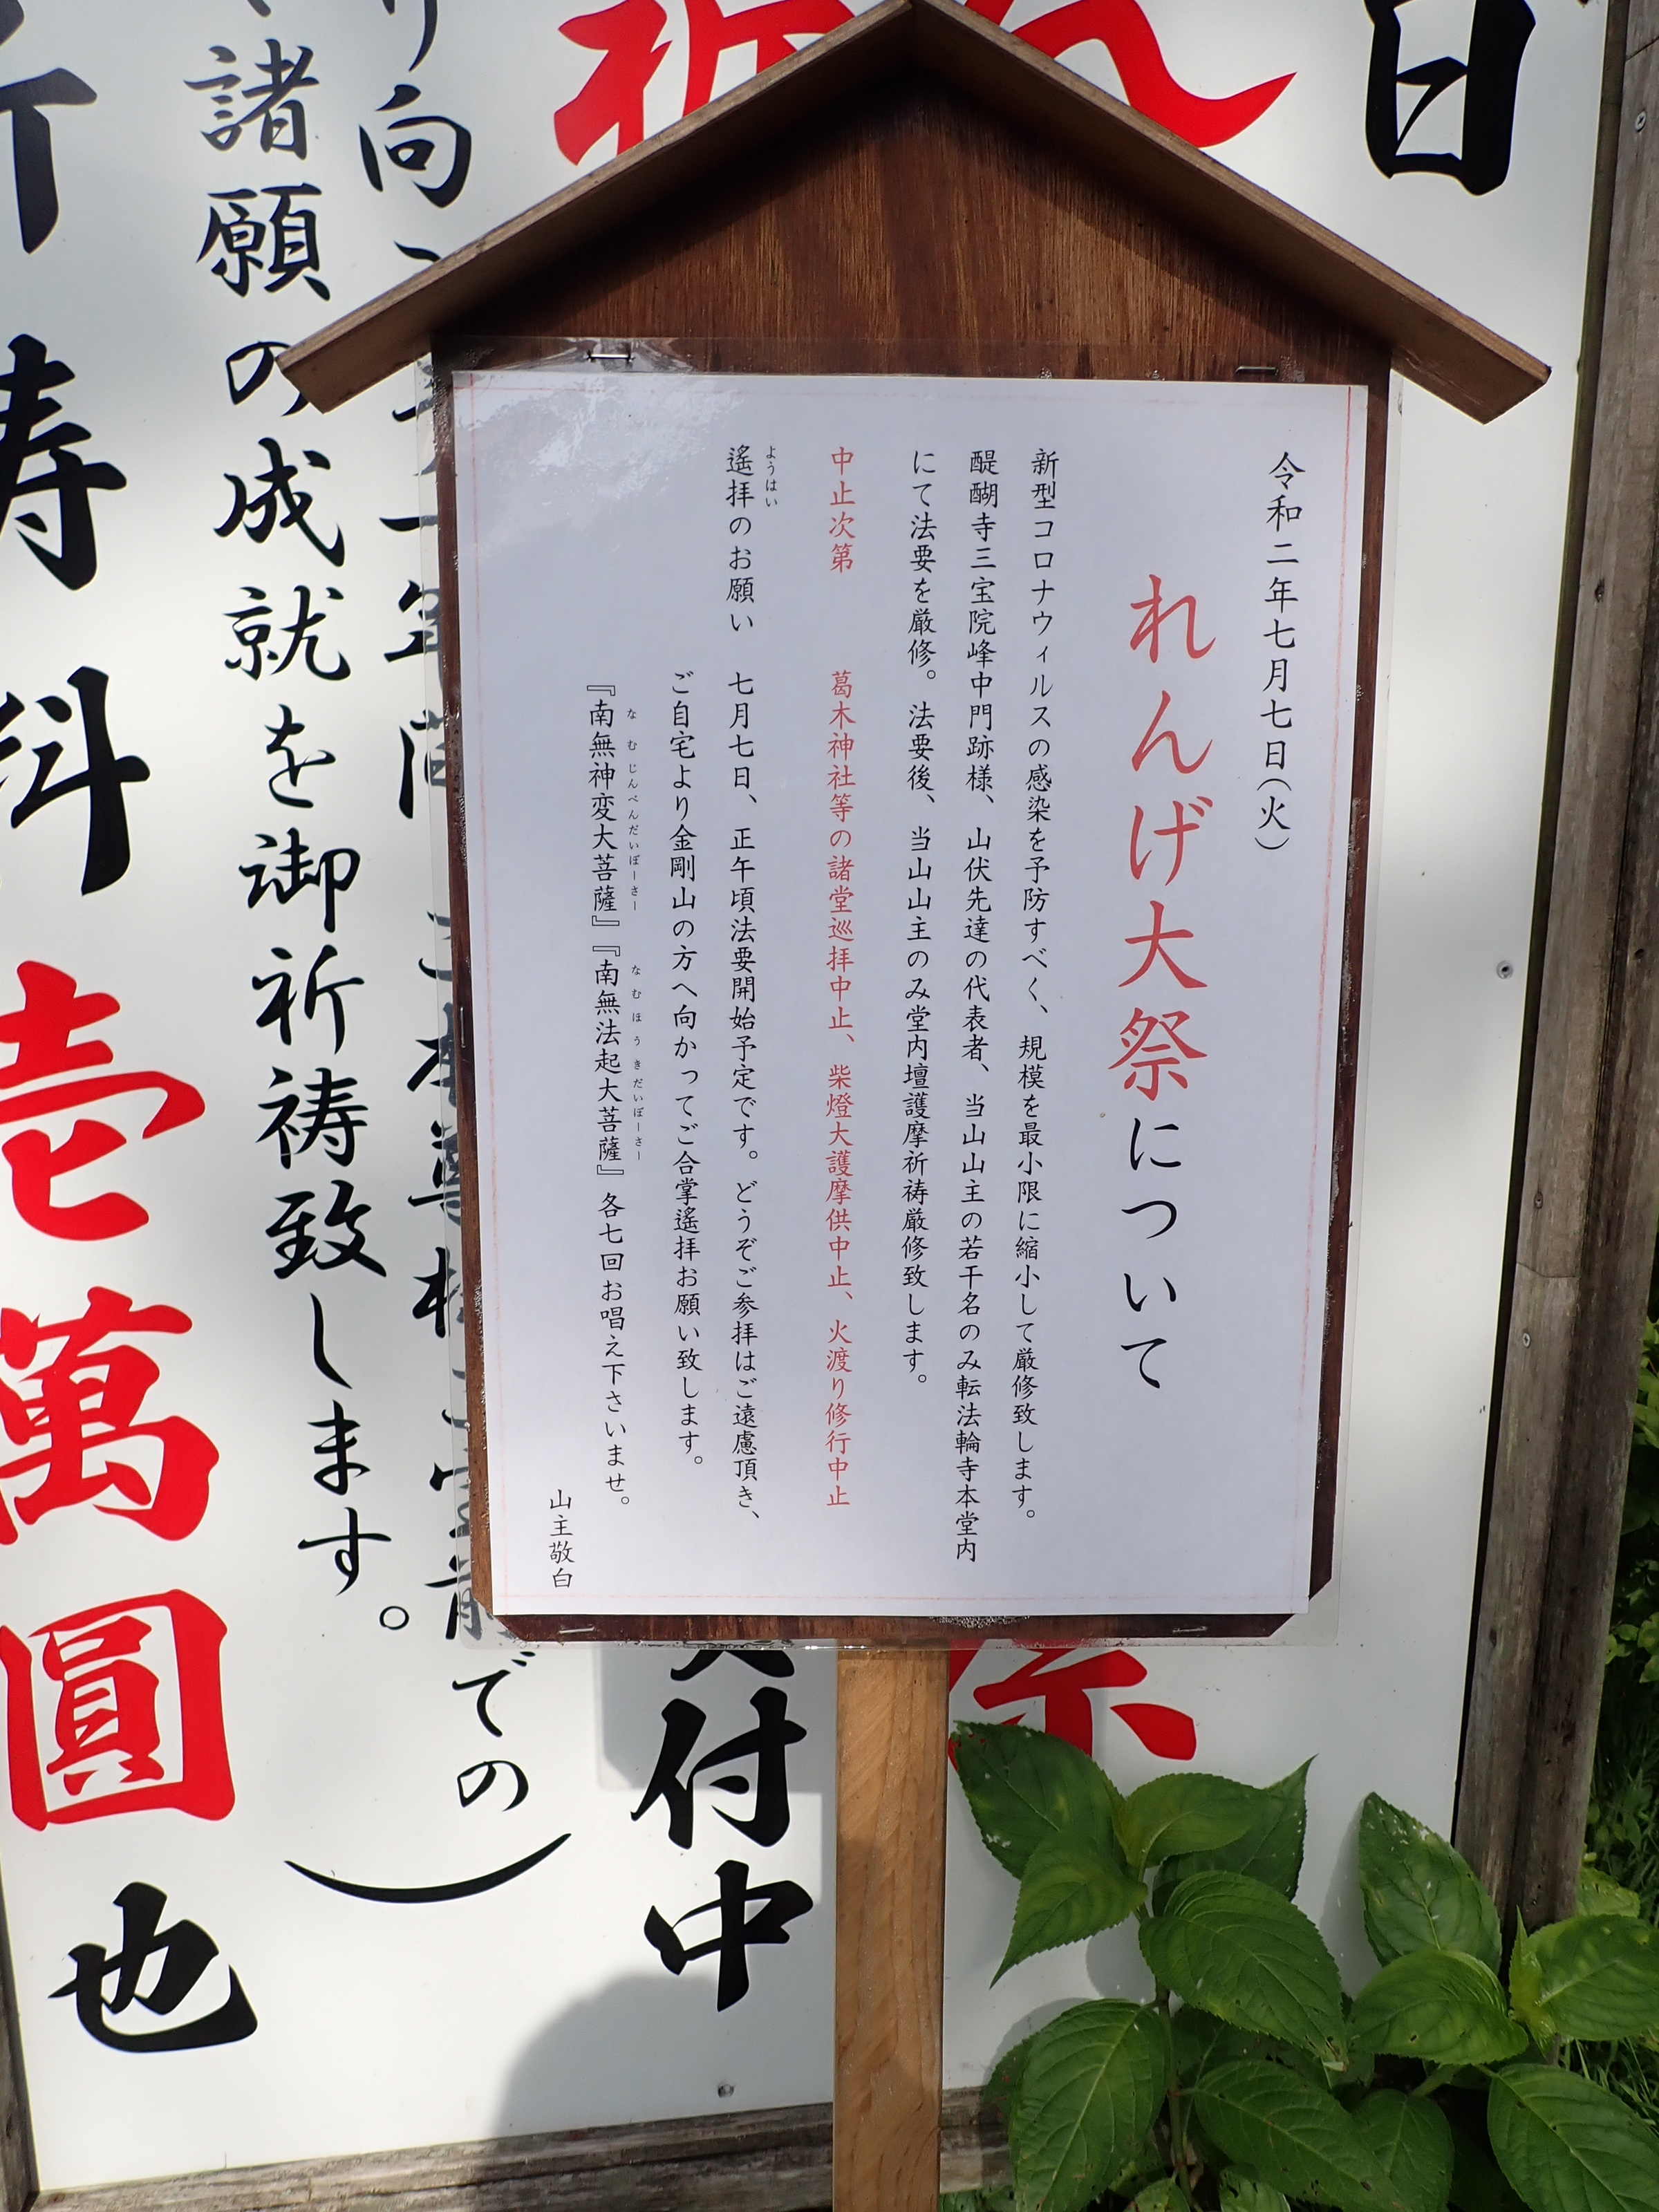 令和二年七月七日(火)
れんげ大祭について
新型コロナウィルスの感染を予防すべく、規模を最小限に縮小して厳修致します。
醍醐寺三宝院峰中門跡様、山伏先達の代表者、当山山主の若干名のみ転法輪寺本堂内
にて法要を厳修。法要後、当山山主のみ堂内壇護摩祈祷厳修致します。
中止次第 葛木神社等の諸堂巡拝中止、柴燈大護摩供中止、火渡り修行中止
ようはい
遙拝のお願い 七月七日、正午頃法要開始予定です。どうぞご参拝はご遠慮頂き、
ご自宅より金剛山の方へ向かってご合掌遙拝お願い致します。
なむじんべんだいぼーさー なむほうきだいぼーさー
『南無神変大菩薩』『南無法起大菩薩』各七回お唱え下さいませ。
山主敬白
日
付中
での)
諸願の成就を御祈祷致します。
祷料壱萬圓也